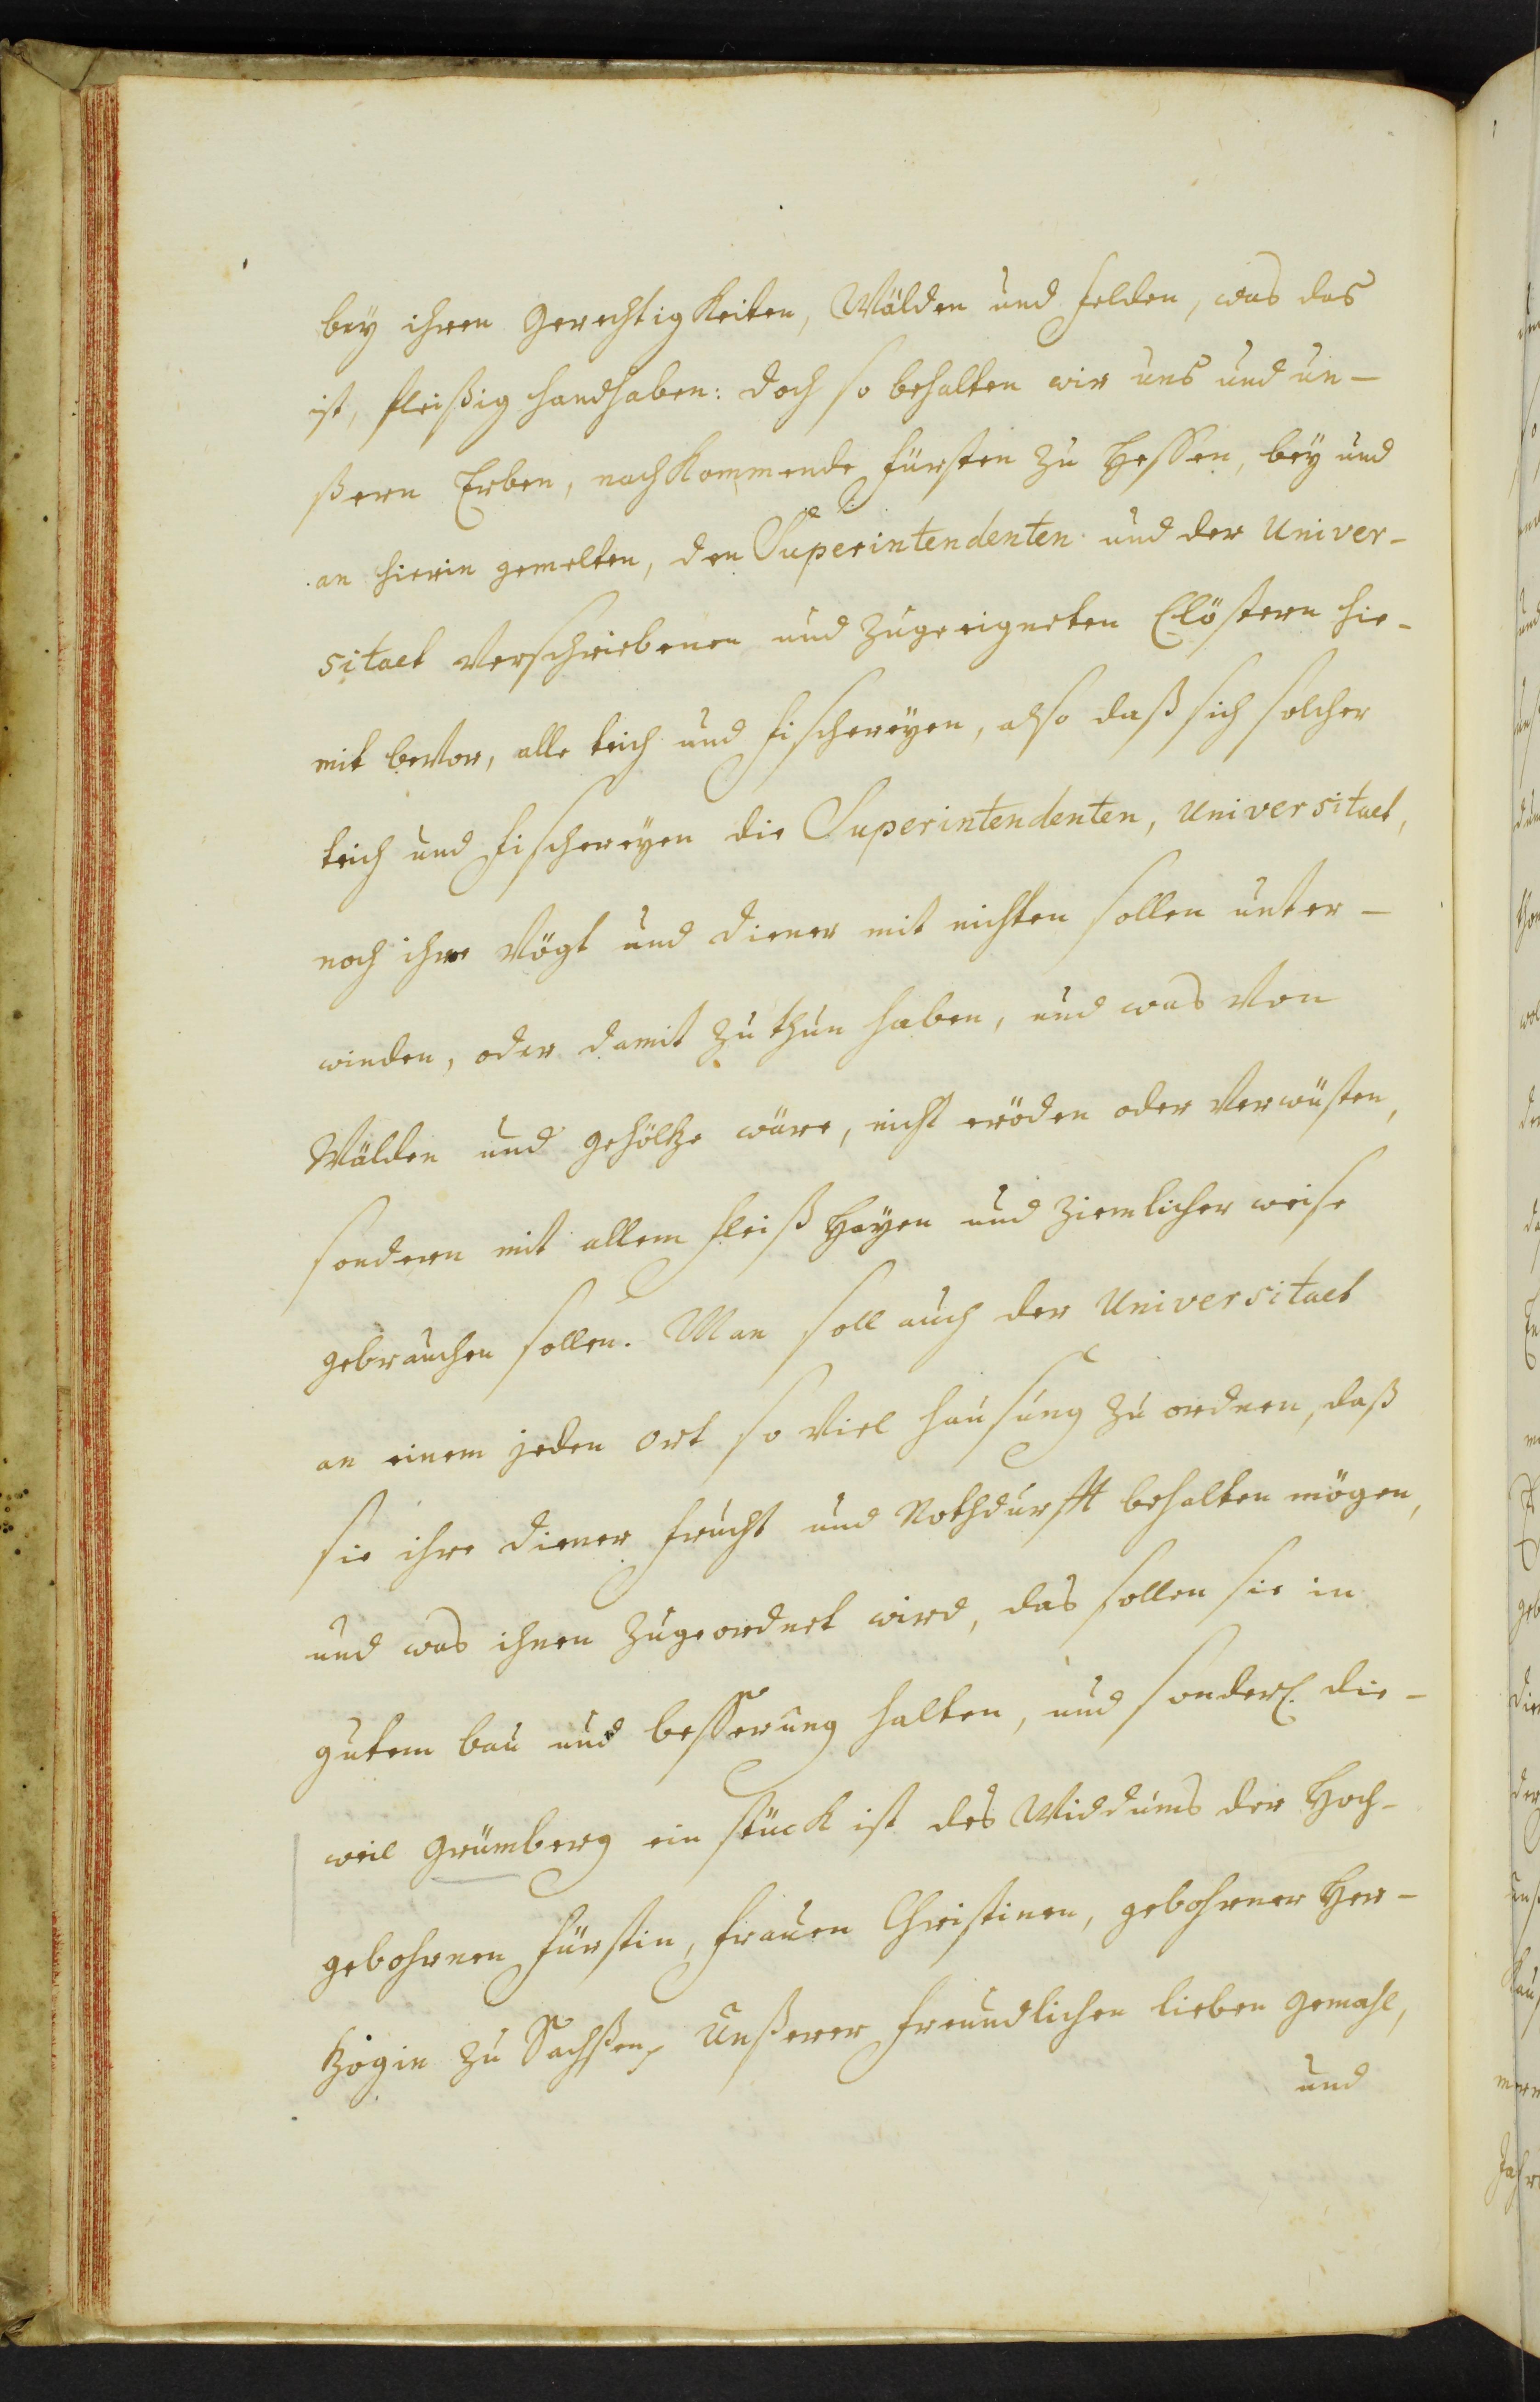 bey ihren Gerechtigkeiten, Wälden und felden, was das
ist, fleißig handhaben: doch so behalten wir uns und un-
ßern Erben, nachkommende fürsten zu Heßen, bey und
an hierin gemelten, den Superintendenten und der Univer-
sitaet verschriebenen und zugeeigneten Clöstern hie-
mit bevor, alle teich und fischereyen, also daß sich solcher
teich und fischereyen die Superintendenten, Universitaet,
noch ihre Vögt und diener mit nichten sollen unter-
winden, oder damit zu thun haben, und was von
Wälden und gehöltze wäre, nicht eröden oder verwüsten,
sondern mit allem fleiß Hayen und ziemlicher weise
gebrauchen sollen. Man soll auch der Universitaet
an einem jeden ort so viel hausung zu ordnen, daß
sie ihre diener frucht und Nothdurfft behalten mögen,
und was ihnen zugeordnet wird, das sollen sie in
gutem bau und beßerung halten, und sonderl. die-
weil Grünberg ein stück ist des Widdums der Hoch-
gebohrnen fürstin, frauen Christinen, gebohrner Her-
tzogin zu Sachßen, Unßerer freundlichen lieben Gemahl,
und